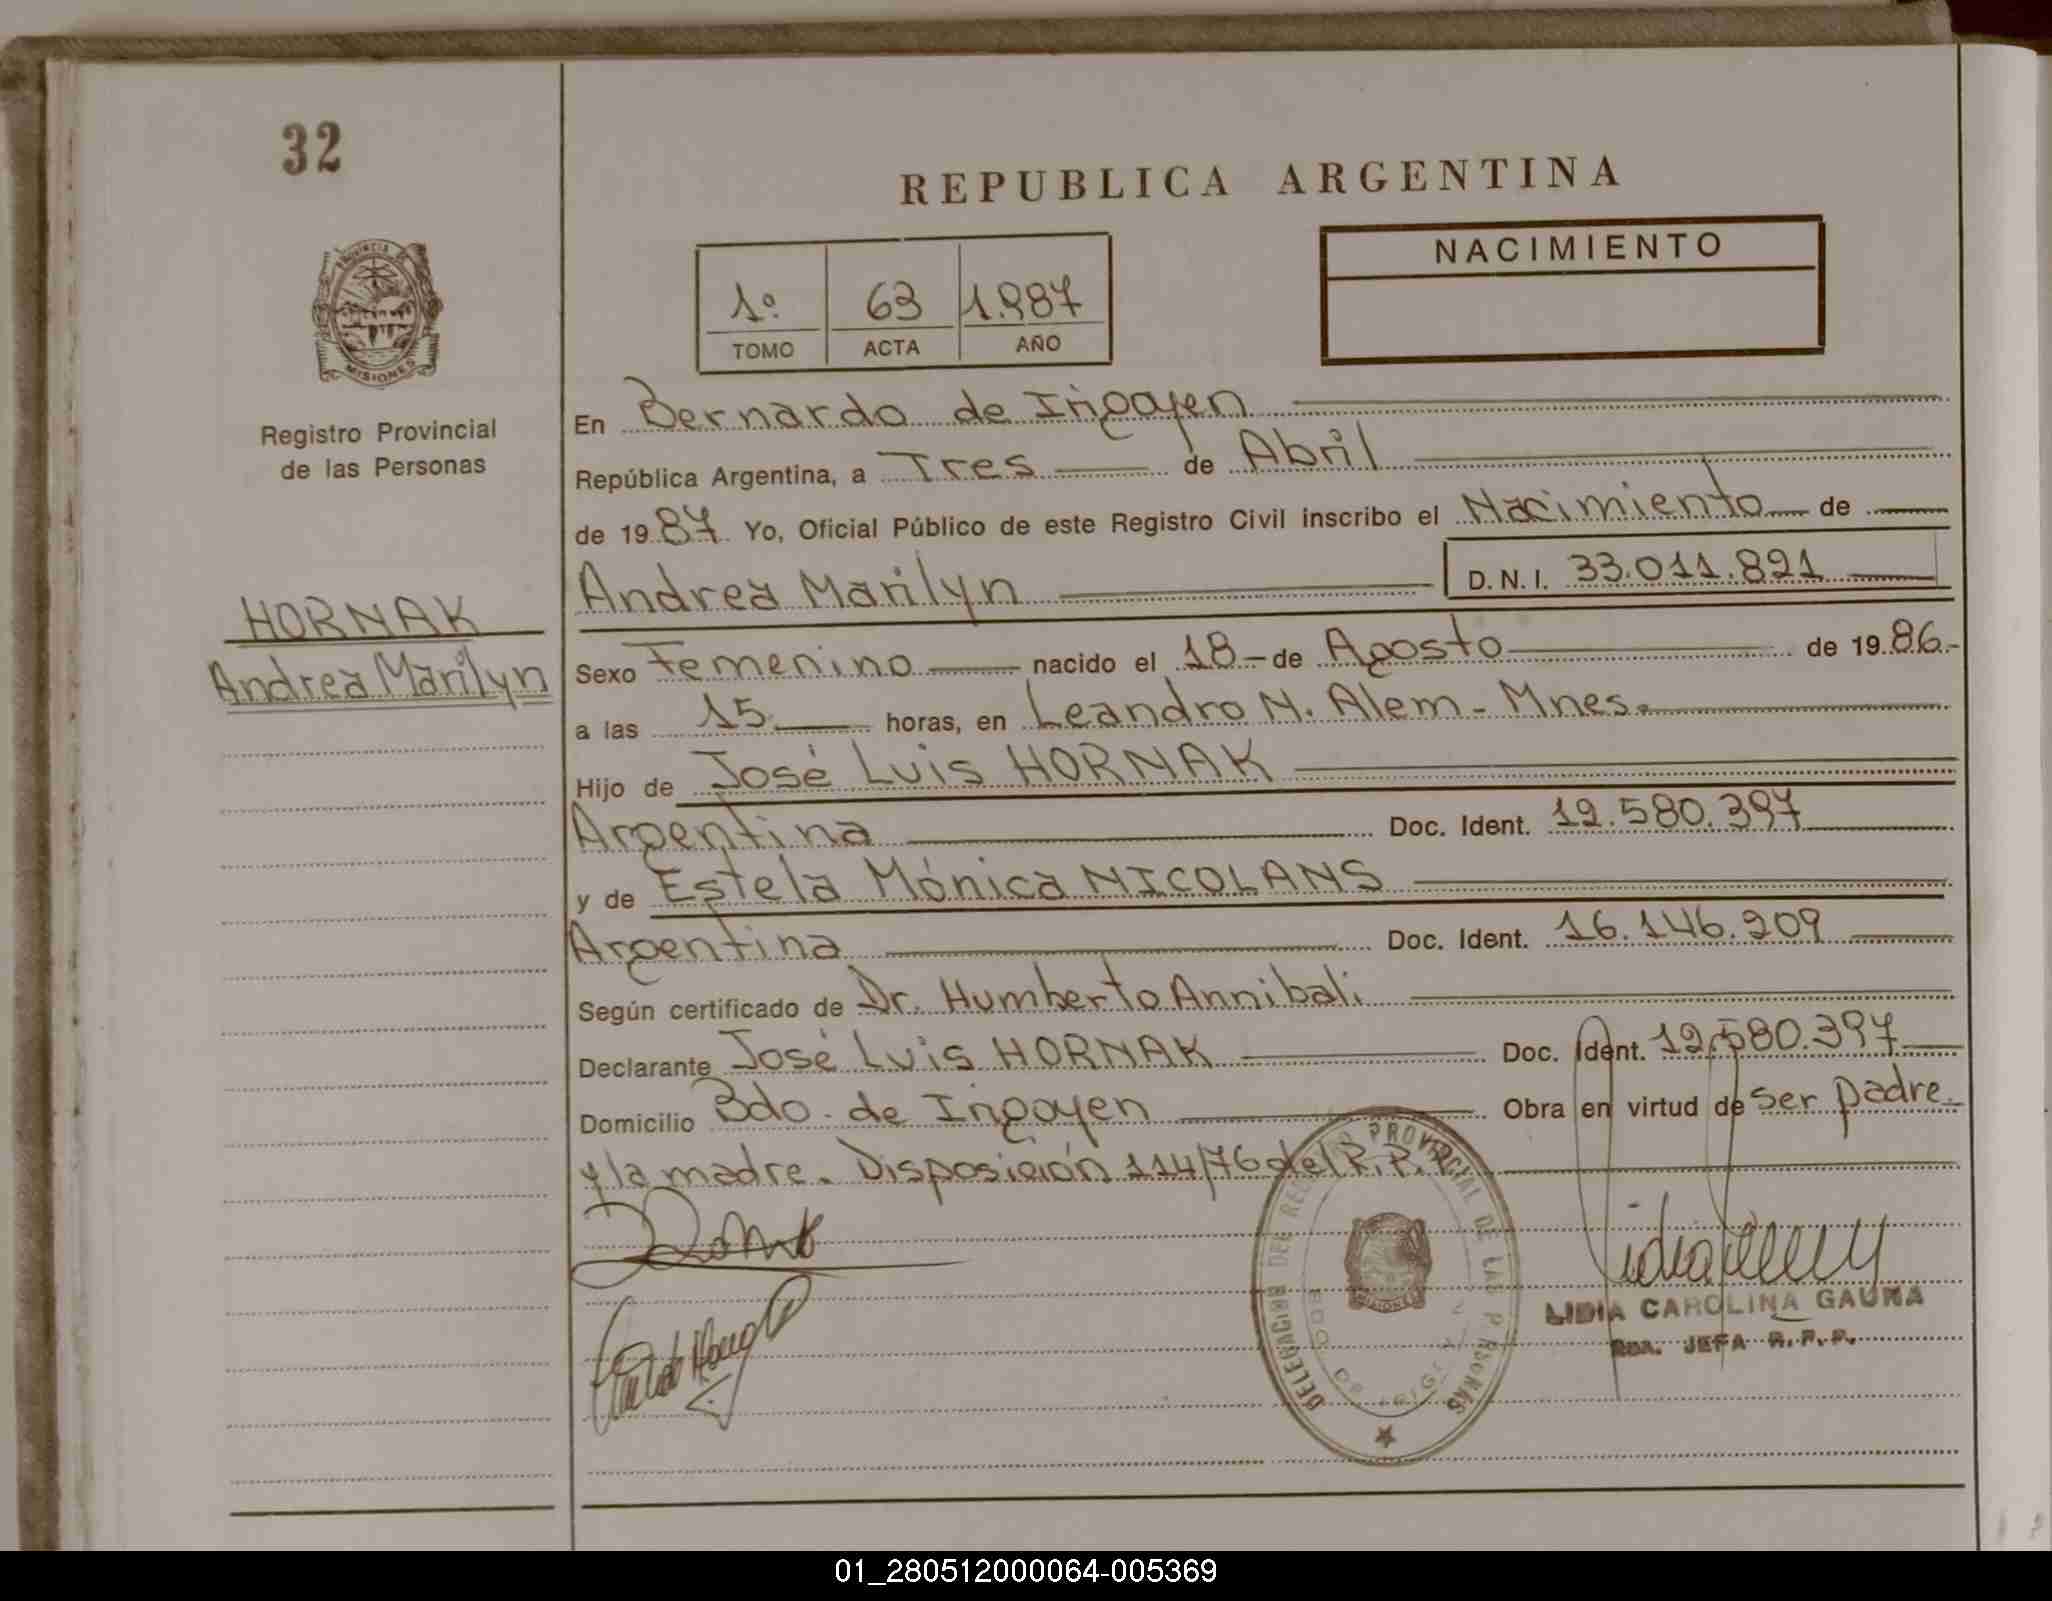 32
REPUBLICA ARGENTINA
NACIMIENTO
1º 63 1.987
TOMO ACTA AÑO
PROVINCIA DE
MISIONES
Registro Provincial
de las Personas
HORNAK
Andrea Marilyn
En Bernardo de Irigoyen
República Argentina, a Tres de Abril
de 1987 Yo, Oficial Público de este Registro Civil inscribo el Nacimiento de
Andrea Marilyn D.N.I. 33.011.821
Sexo Femenino nacido el 18 de Agosto de 1986.-
a las 15 horas, en Leandro N. Alem - Mnes.
Hijo de José Luis HORNAK
Argentina Doc. Ident. 12.580.397
y de Estela Mónica NICOLANS
Argentina Doc. Ident. 16.146.209
Según certificado de Dr. Humberto Annibali
Declarante José Luis HORNAK Doc. Ident. 12.580.397
Domicilio Bdo. de Irigoyen Obra en virtud de ser padre
y la madre. Disposición 114/76 del R.P.P.
DELEGACION DEL REGISTRO PROVINCIAL DE LAS PERSONAS
BDO. DE IRIGOYEN
MISIONES
LIDIA CAROLINA GAUNA
JEFA R.P.P.
01_280512000064-005369